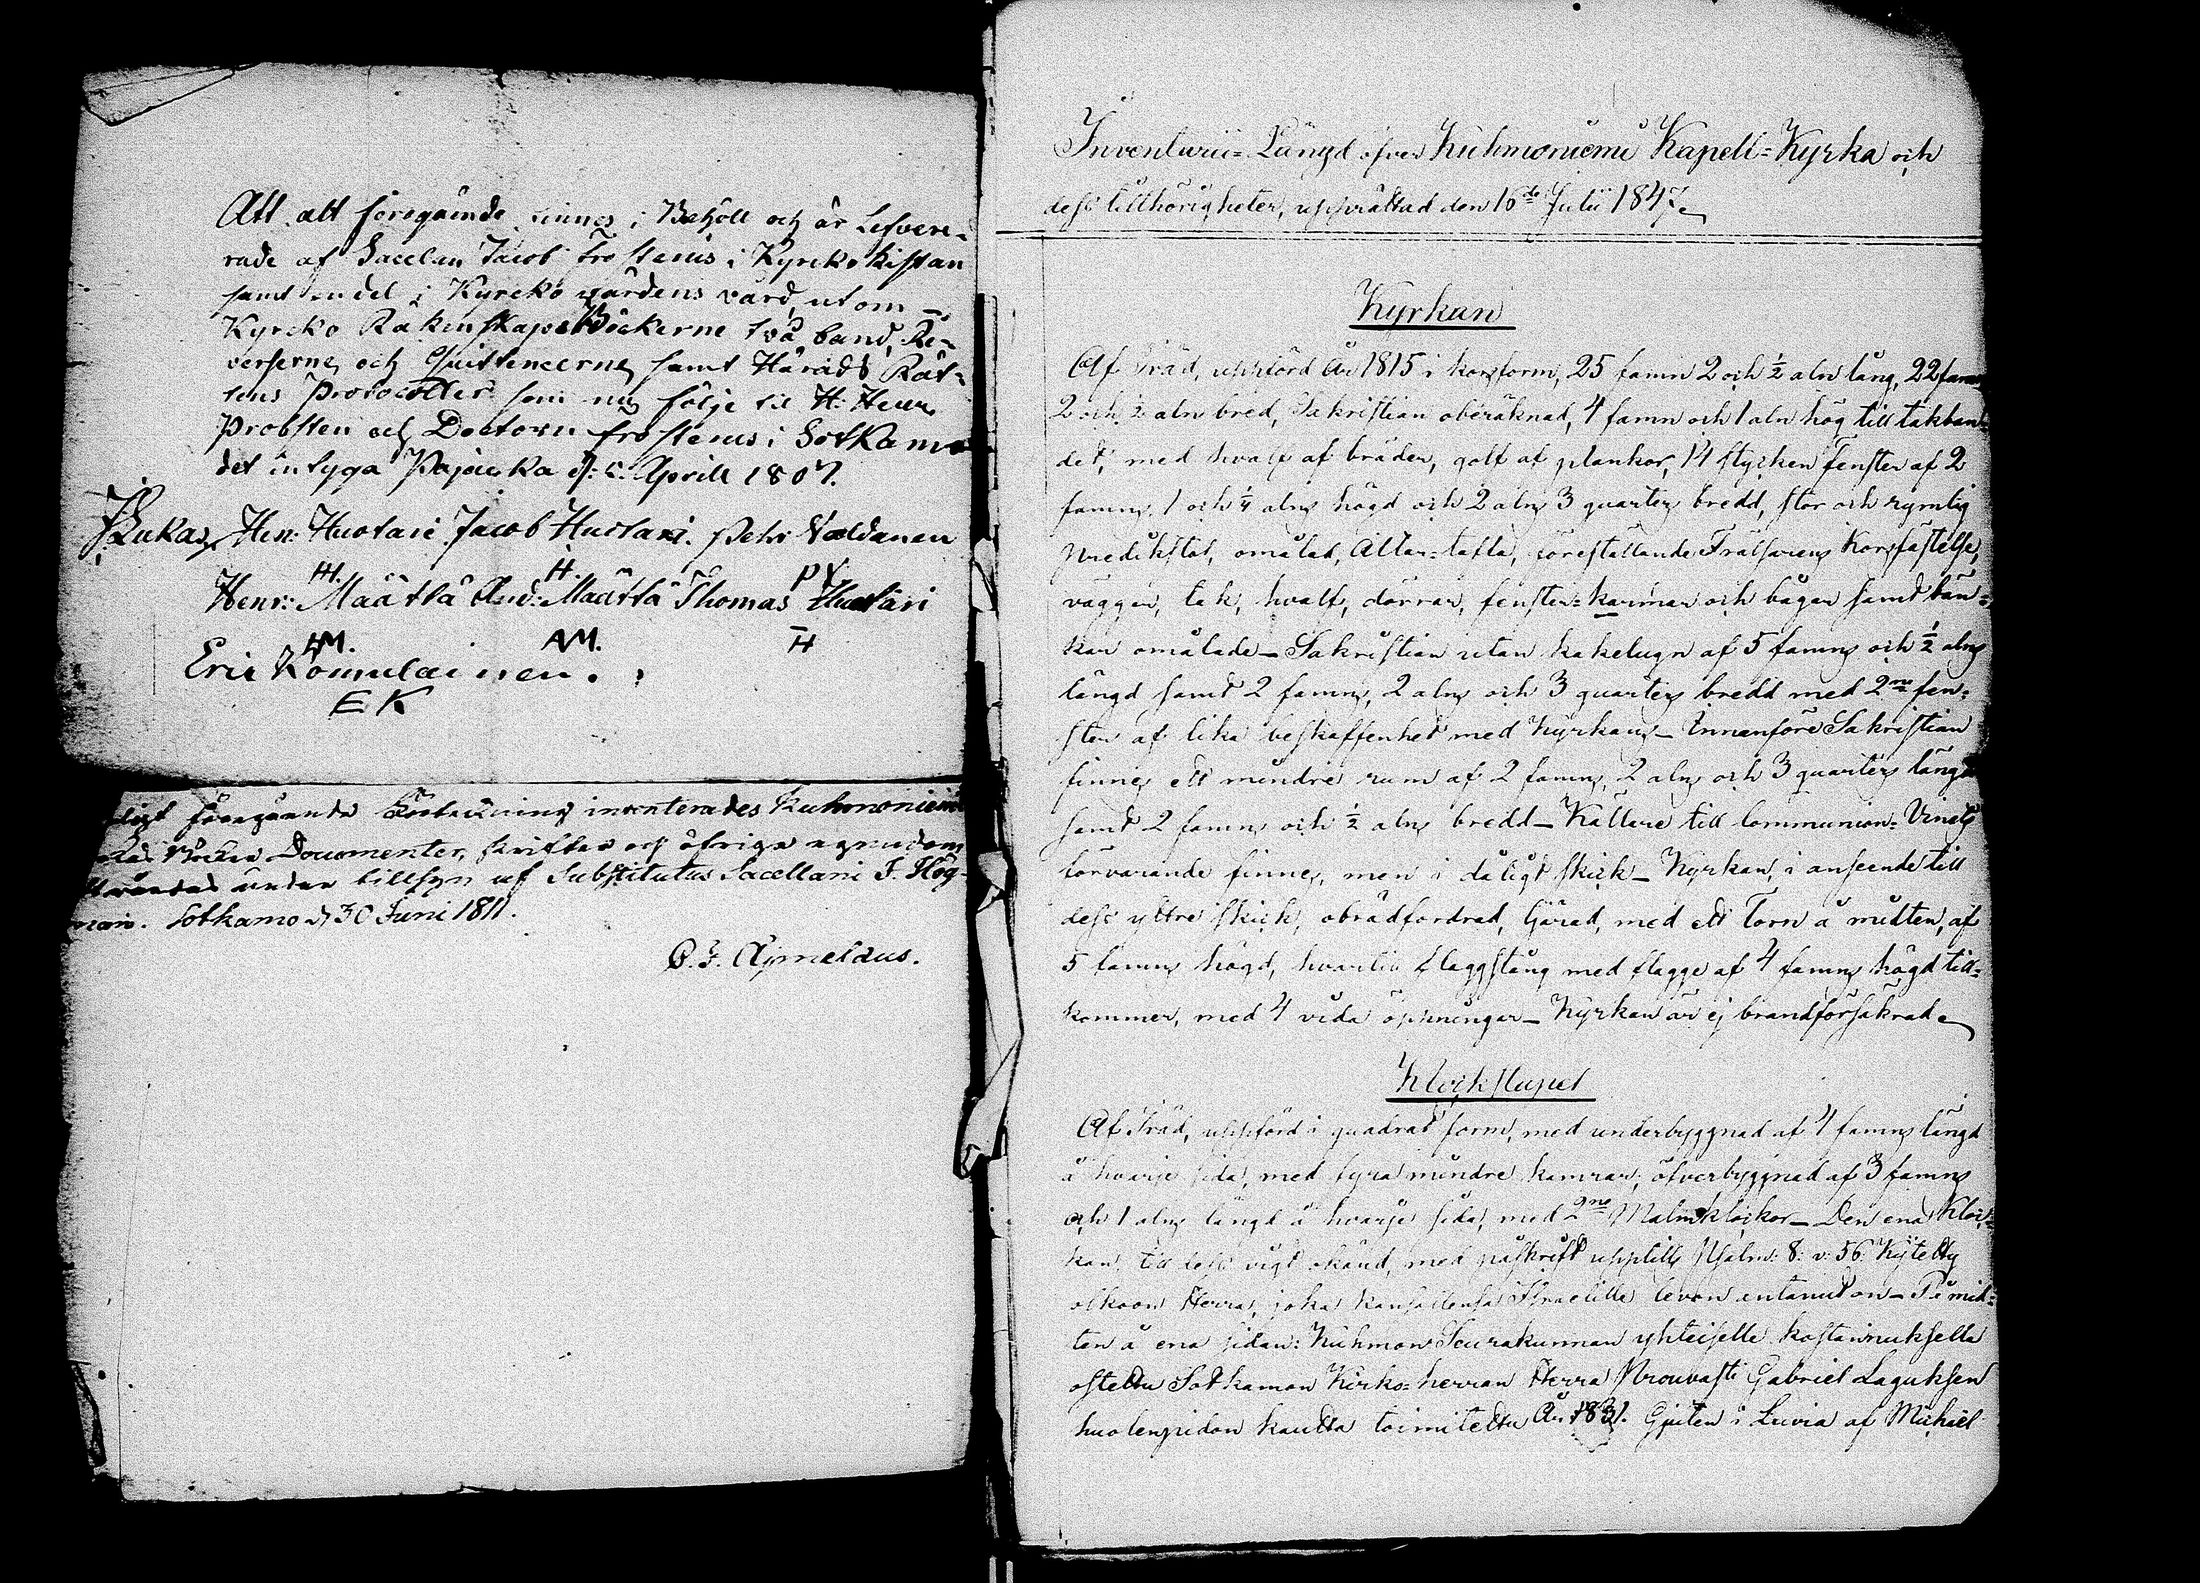 Att alt föregående finnes i Behåll och är Lefvere-
rade af Sacellan Jacob Frosterus i Kyrcko Kistan
samt en del i Kyrcko gårdens vård, utom
Kyrcko Räkenskaps Böckerne två band, Re-
verserne och Quittencerne samt Härads Rät-
tens Protocoller som nu följe til H: Herr
Probsten och Doctorn Frosterus i Sotkamo
det intyga Pajacka d: 5. Aprill 1807.
Lukas Hen: Huotari Jacob Huotari. Petr Väldänen
H. H. PV
Henr: Määttä And: Määttä Thomas Huotari
HM. AM. TH
Eric Komulainen.
EK
föregående Förteckning inventerades Kuhmoniemi
Böcker Documenter, skrifter och öfriga egendom
under tillsyn af Substitutus Sacellani J. Hög-
man. Sotkamo d 30 Juni 1811.
Äjmelæus.
Inventarii-Längd öfver Kuhmoniemi Kapell-Kyrka och
dess tillhörigheter, upprättad den 16de Julii 1847.
Kyrkan
Af Träd, uppförd År 1815 i korsform, 25 famn 2 och ½ aln lång, 22 famn
2 och ½ aln bred, Sakristian oberäknad, 4 famn och 1 aln hög till takban-
det, med hvalf af bräder, golf af plankor, 14 stycken fenster af 2
famns, 1 och ¼ alns högd och 2 alns 3 quarters bredd, stor och rymlig
Predikstol, omålad, Altar-tafla, föreställande Frälsarens Korsfästelse,
väggar, tak, hvalf, dörrar, fenster-karmar och bågar samt bän-
kar omålade – Sakristian utan kakelugn af 5 famns och ½ alns
längd samt 2 famns, 2 alns och 3 quarters bredd med 2ne fen-
ster af lika beskaffenhet med Kyrkans – Innanföre Sakristian
finnes ett mindre rum af 2 famns, 2 alns och 3 quarters längd
samt 2 famns och ½ alns bredd – Källare till Communion-Vinets
förvarande finnes, men i dåligt skick – Kyrkan, i anseende till
dess yttre skick, obrädfordrad, tjärad, med ett Torn å midten, af
5 famns högd, hvartill flaggstång med flagge af 4 famns högd till-
kommer, med 4 vida öpningar – Kyrkan är ej brandförsäkrad.
Klockstapel
Af Träd, uppförd i quadrat form, med underbyggnad af 4 famns längd
å hvarje sida, med fyra mindre kamrar, öfverbyggnad af 3 famns
och 1 alns längd å hvarje sida, med 2ne Malmklockor – Den ena Kloc-
kan, till dess vigt okänd, med påskrift upptill: Psalm: 8: v: 56 Kijtetty
olkoon Herra, joka kansallensa Israelille levon antanut on – På mid-
ten å ena sidan: Kuhmon Seurakunnan yhteisellä kostannuksella
ostettu Sotkamon Kirko-herran Herra Prouvasti Gabriel Laguksen
huolenpidon kautta toimitettu År 1831. Gjuten i Luvia af Michael